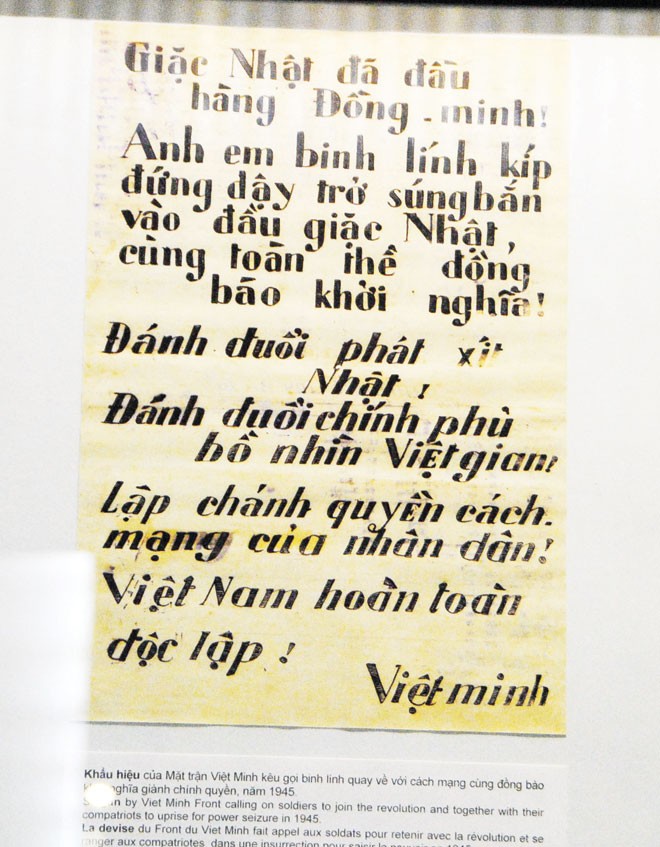 Giặc Nhật đã đầu
hàng Đồng-minh!
Anh em binh lính kíp
đứng dậy trở súng bắn
vào đầu giặc Nhật,
cùng toàn thể đồng
bào khởi nghĩa!
Đánh đuổi phát xít
Nhật!
Đánh đuổi chính phủ
bồ nhìn Việt gian!
Lập chánh quyền cách-
mạng của nhân dân!
Việt Nam hoàn toàn
độc lập!
Việt minh
Khẩu hiệu của Mặt trận Việt Minh kêu gọi binh lính quay về với cách mạng cùng đồng bào
nghĩa giành chính quyền, năm 1945.
by Viet Minh Front calling on soldiers to join the revolution and together with their
compatriots to uprise for power seizure in 1945.
La devise du Front du Viet Minh fait appel aux soldats pour retenir avec la révolution et se
ranger aux compatriotes dans une insurrection pour saisir